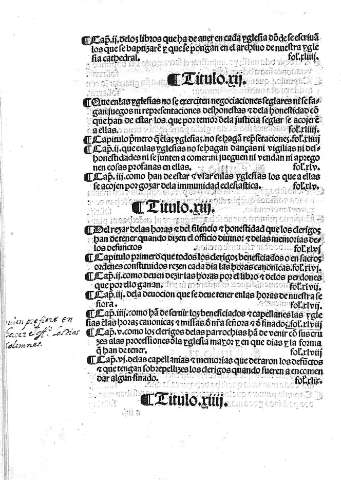 ¶ Cap̃.ij. delos libros que ha de auer en cada yglesia dõde se escriuã
los que se baptizarẽ y que se pongan en el archiuo de nuestra ygle
sia cathedral. fol.xliiij.
¶ Titulo.xij.
¶ Que enlas yglesias no se exerciten negociaciones seglares ni se fa-
gan juegos ni representaciones deshonestas ⁊ dela honestidad cõ
que han de estar los que por temor dela justicia seglar se acojen
a ellas. fol.xliiij.
¶ Capitulo p̃mero q̃ en las yglesias, no se hagã re͂presentaciones. fol.xliiij
¶ Cap̃.ij. que enlas yglesias no se hagan danças ni vigilias ni des-
honestidades ni se junten a comer ni jueguen ni vendan ni aprego
nen cosas profanas en ellas. fol.xlv.
¶ Cap̃.iij. como han de estar y viar enlas yglesias los que a ellas
se acojen por gozar dela immunidad eclesiastica. fol.xlv.
¶ Titulo.xiij.
¶ Del rezar delas horas ⁊ del silencio ⁊ honestidad que los clerigos
han de tener quando dizen el officio diuino: ⁊ delas memorias de
los defunctos fol.xlvj
¶ Capitulo primero que todos los clerigos beneficiados o en sacros
ordenes constituidos rezen cada dia las horas canonicas. fol.xlvj.
¶ Cap̃.ij. como deuen dezir las horas por el libro ⁊ delos perdones
que por ello ganan. fol.xlvij.
¶ Cap̃.iij. dela deuocion que se deue tener enlas horas de nuestra se
ñora. fol.xlvij.
¶ Cap̃.iiij. como hã de seruir los beneficiados ⁊ capellanes las ygle
sias ⁊ las horas canonicas ⁊ missas
¶ Cap̃.v. como los clerigos delas parrochias hã de venir cõ sus cru
zes alas processiones dla yglesia mayor y en que dias y la forma
q̃ han de tener. fol.xlviij
¶ Cap̃.vj. delas capellanias ⁊ memorias que dexaron los defũctos
⁊ que tengan sobrepellizes los clerigos quando fueren a encomen
dar algun finado. fol.xlix.
¶ Titulo.xiiij.